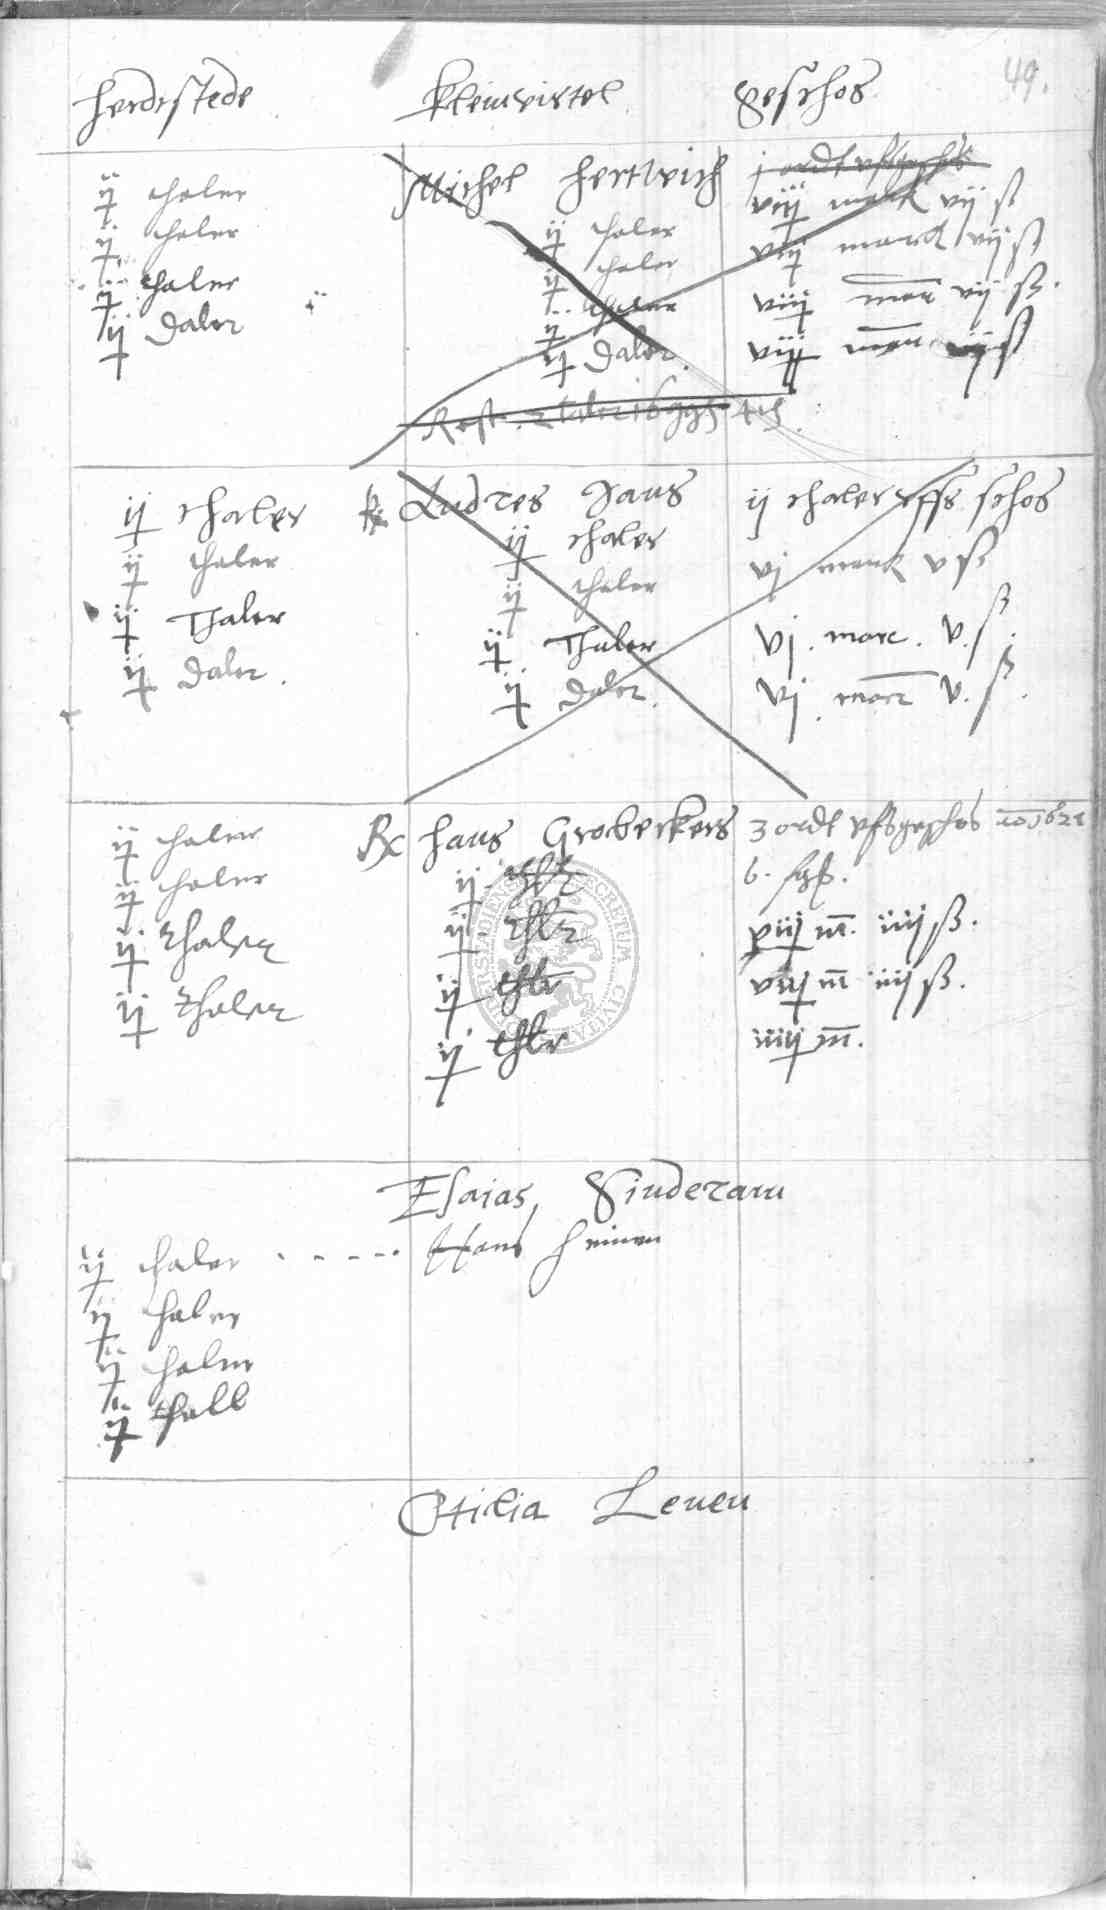 49.
Herdtstede Kleinvirtel Geschos
Michel Hertwich j ordt uffs geschos
ij thaler viij marck vij ß
ij thaler ij thaler viij marck vij ß
ij thaler ij thaler viij marc vij ß.
ij daler ij thaler viij marc vij ß
ij daler.
Rest. 2 taler
ij thaler Andres Jans ij thaler uffs schos
ij thaler ij thaler vj marck v ß
ij Thaler ij thaler vj. marc. v. ß.
ij daler. ij Thaler vj. marc v. ß.
ij daler.
ij thaler Rx Hans Grobeckers 3 ordt uffs geschos 1621
ij thaler ij. thlr 6. sgß.
ij thaler ij. thlr viij m. iiij ß.
ij thaler ij thlr viij m iiij ß.
ij thlr iiij m.
Esaias Sinderam
ij thaler - - - - - Hans Heinen
ij thaler
ij thaler
ij thall
Otilia Leuen
SECRETUM CIVITATIS